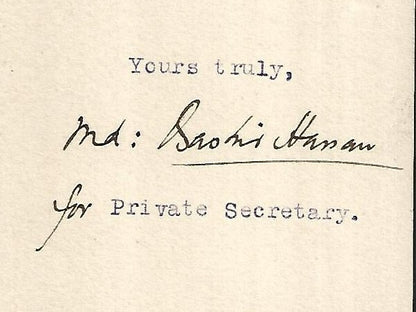 Yours truly,
Md: Bashir Hassan
for Private Secretary.